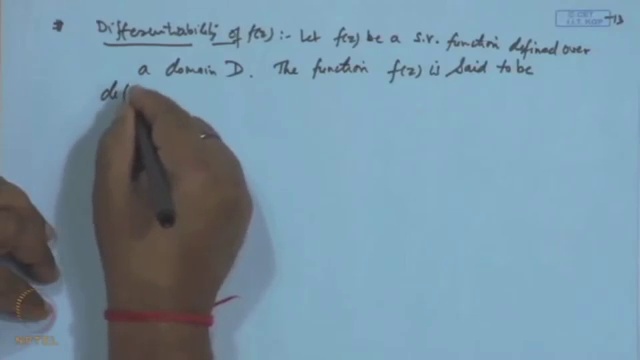 * Differentiability of f(z) :- Let f(z) be a s.v. function defined over
a domain D. The function f(z) is said to be
def
© CET
I.I.T. KGP
NPTEL